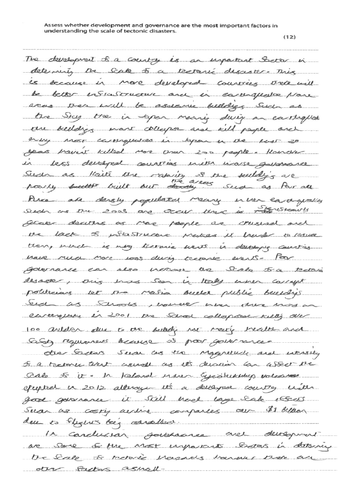 Assess whether development and governance are the most important factors in
understanding the scale of tectonic disasters.
(12)
The development of a country is an important factor in
determining the scale of a tectonic disaster. This
is because in more developed countries there will
be better infrastructure and in earthquake prone
areas there will be aseismic buildings such as
the Sky tree in Japan meaning during an earthquake
the buildings wont collapse and kill people and
why most earthquakes in Japan in the last
years havent killed more than 200 people. However
in less developed countries with worse governance
such as Haiti the majority of the buildings are
poorly built but the areas such as Port au
Prince are densely populated meaning when earthquakes
such as the occur there is significantly
greater deaths as more people are and
the lack of infrastructure makes it harder to
them, which is why tectonic events in developing countries
have much more during tectonic events. Poor
governance can also increase the scale of a tectonic
disaster, this was seen in Italy when corrupt
politicians let the mafia build public buildings
such as schools, however when there was an
earthquake in 2001 the school collapsed killing over
100 children due to the building not meeting health and
safety requirements because of poor governance.
Other factors such as the magnitude and intensity
of a tectonic event aswell as its duration can affect the
scale of it. In Iceland when Eyjafjallajökull
erupted in 2012 although its a developed country with
good governance it still had large scale effects
such as costing airline companies over $1 billion
due to flights being cancelled.
In conclusion governance and development
are some of the most important factors in determining
the scale of tectonic however there are
other factors aswell.